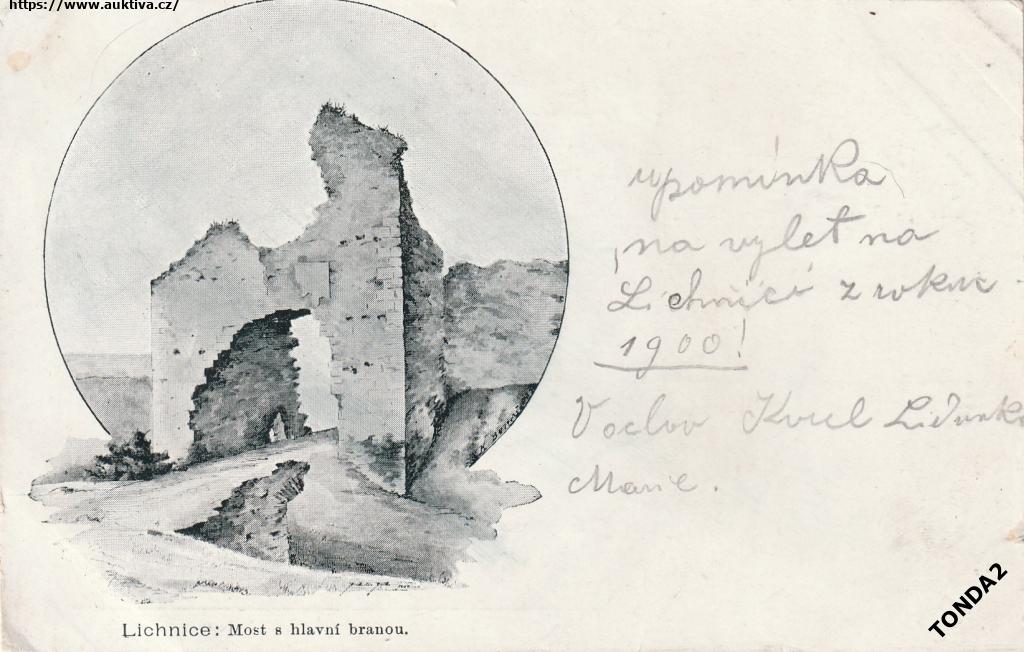 https://www.auktiva.cz/
upomínka
na vylet na
Lichnici z roku
1900!
Vaclav Karel Lidunka
Marie.
Lichnice: Most s hlavní branou.
TONDA2